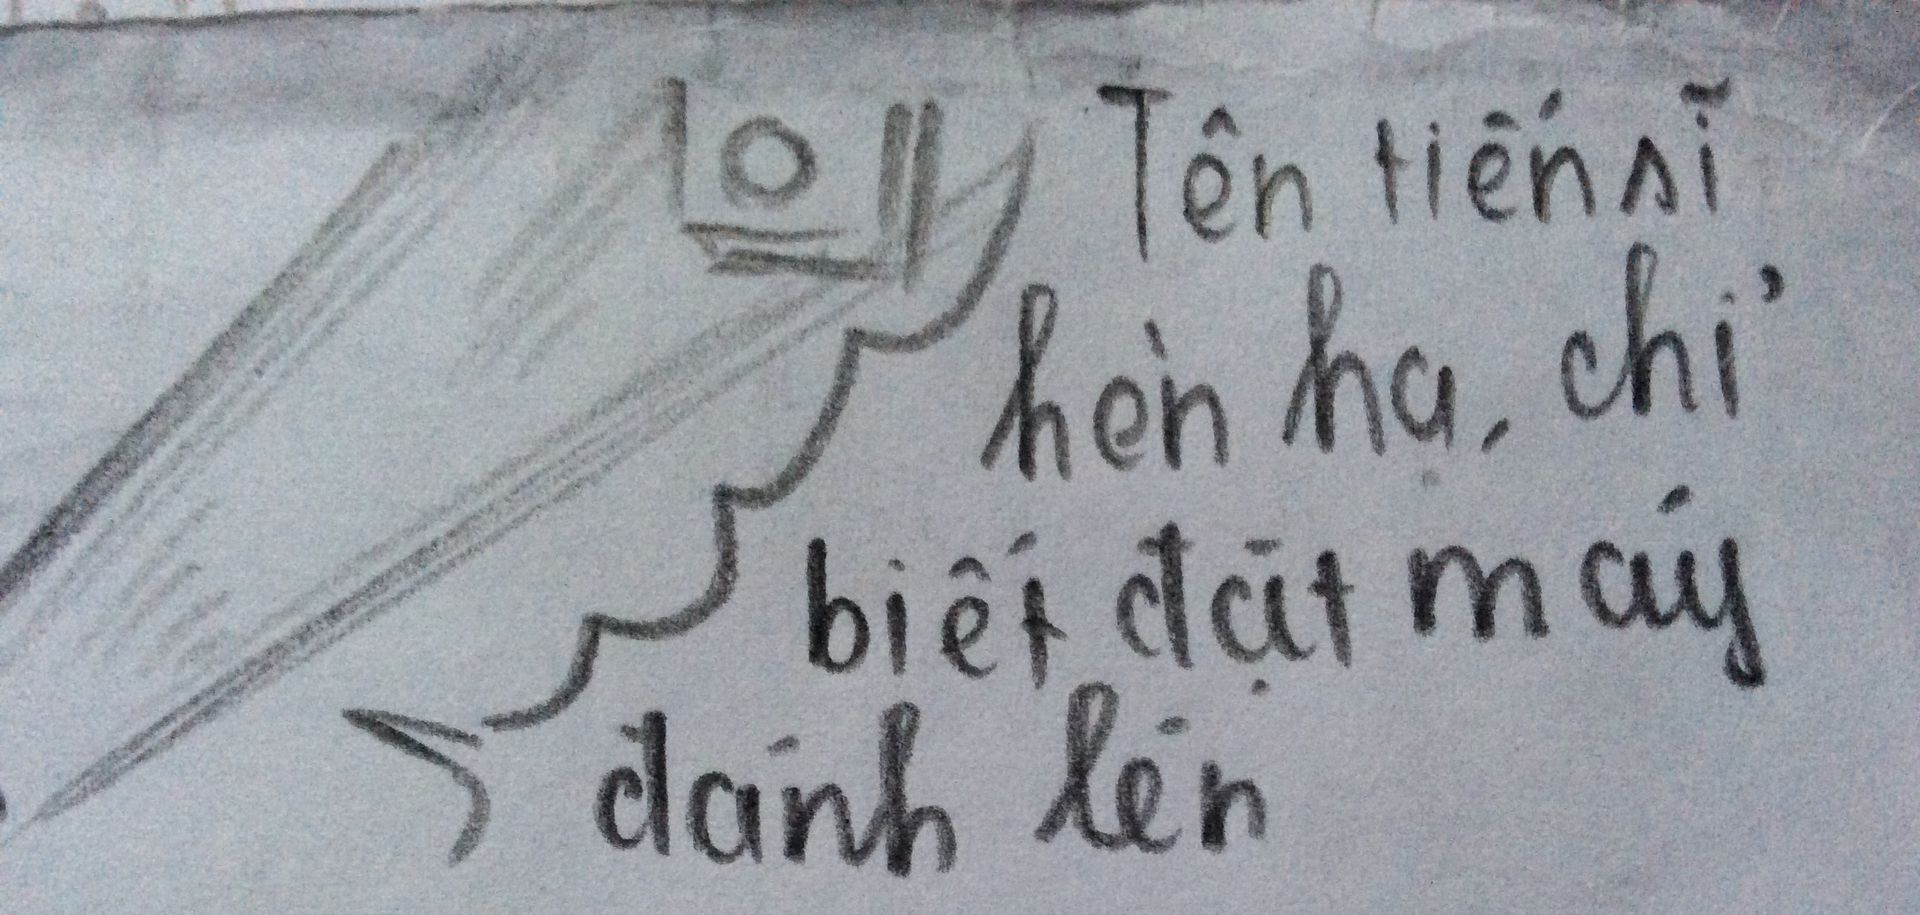 Tên tiến sĩ
hèn hạ, chỉ
biết đặt máy
đánh lén